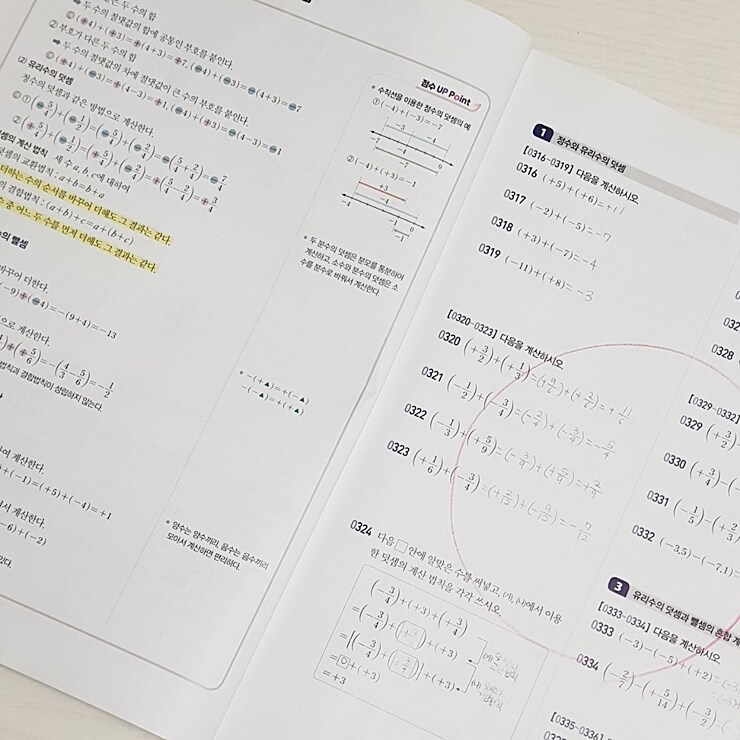 두 수의 합
➡ 두 수의 절댓값의 합에 공통인 부호를 붙인다.
(+4)+(+3)=+(4+3)=+7, (-4)+(-3)=-(4+3)=-7
② 부호가 다른 두 수의 합
➡ 두 수의 절댓값의 차에 절댓값이 큰 수의 부호를 붙인다.
(+4)+(-3)=+(4-3)=+1, (-4)+(+3)=-(4-3)=-1
(2) 유리수의 덧셈
정수의 덧셈과 같은 방법으로 계산한다.
① (-5/4)+(-1/2)=(-5/4)+(-2/4)=-(5/4+2/4)=-7/4
② (+5/4)+(-1/2)=(+5/4)+(-2/4)=+(5/4-2/4)=+3/4
덧셈의 계산 법칙 세 수 a, b, c에 대하여
덧셈의 교환법칙 : a+b=b+a
더하는 수의 순서를 바꾸어 더해도 그 결과는 같다.
의 결합법칙 : (a+b)+c=a+(b+c)
중 어느 두 수를 먼저 더해도 그 결과는 같다.
의 뺄셈
바꾸어 더한다.
(-9)+(-4)=-(9+4)=-13
으로 계산한다.
=-(4/3-5/6)=-1/2
법칙과 결합법칙이 성립하지 않는다.
하여 계산한다.
+(-1)=(+5)+(-4)=+1
서 계산한다.
-6)+(-2)
있다.
점수 UP Point
* 수직선을 이용한 정수의 덧셈의 예
① (-4)+(-3)=-7
-3 -4
-7 -4 0
-7
② (-4)+(+3)=-1
+3
-4
-4 -1 0
-1
* 두 분수의 덧셈은 분모를 통분하여
계산하고, 소수와 분수의 덧셈은 소
수를 분수로 바꿔서 계산한다.
* -(+▲)=+(-▲)
-(-▲)=+(+▲)
* 양수는 양수끼리, 음수는 음수끼리
모아서 계산하면 편리하다.
1 정수와 유리수의 덧셈
[0316~0319] 다음을 계산하시오.
0316 (+5)+(+6)=+11
0317 (-2)+(-5)=-7
0318 (+3)+(-7)=-4
0319 (-11)+(+8)=-3
[0320~0323] 다음을 계산하시오.
0320 (+3/2)+(+1/3)=(+9/6)+(+2/6)=+11/6
0321 (-1/2)+(-3/4)=(-2/4)+(-3/4)=-5/4
0322 (-1/3)+(+5/9)=(-3/9)+(+5/9)=+2/9
0323 (+1/6)+(-3/4)=(+2/12)+(-9/12)=-7/12
0324 다음 □ 안에 알맞은 수를 써넣고, (가), (나)에서 이용
한 덧셈의 계산 법칙을 각각 쓰시오.
(-3/4)+(+3)+(+3/4)
=(-3/4)+( )+(+3)
={(-3/4)+( )}+(+3)
(가)
=0+(+3)
(나)
=+3
032
0328
[0329~0332]
0329 (+3/2)
0330 (+3/4)-(
0331 (-1/5)-(+2/3)
0332 (-3.5)-(-7.1)=
3 유리수의 덧셈과 뺄셈의 혼합 계
[0333~0334] 다음을 계산하시오.
0333 (-3)-(-5)+(+2)
0334 (-2/7)-(+5/14)+(-3/2)
[0335~0336]